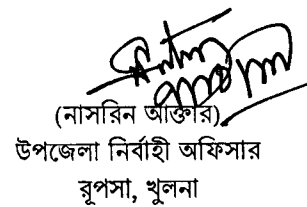 (নাসরিন আক্তার)
উপজেলা নির্বাহী অফিসার
রূপসা, খুলনা